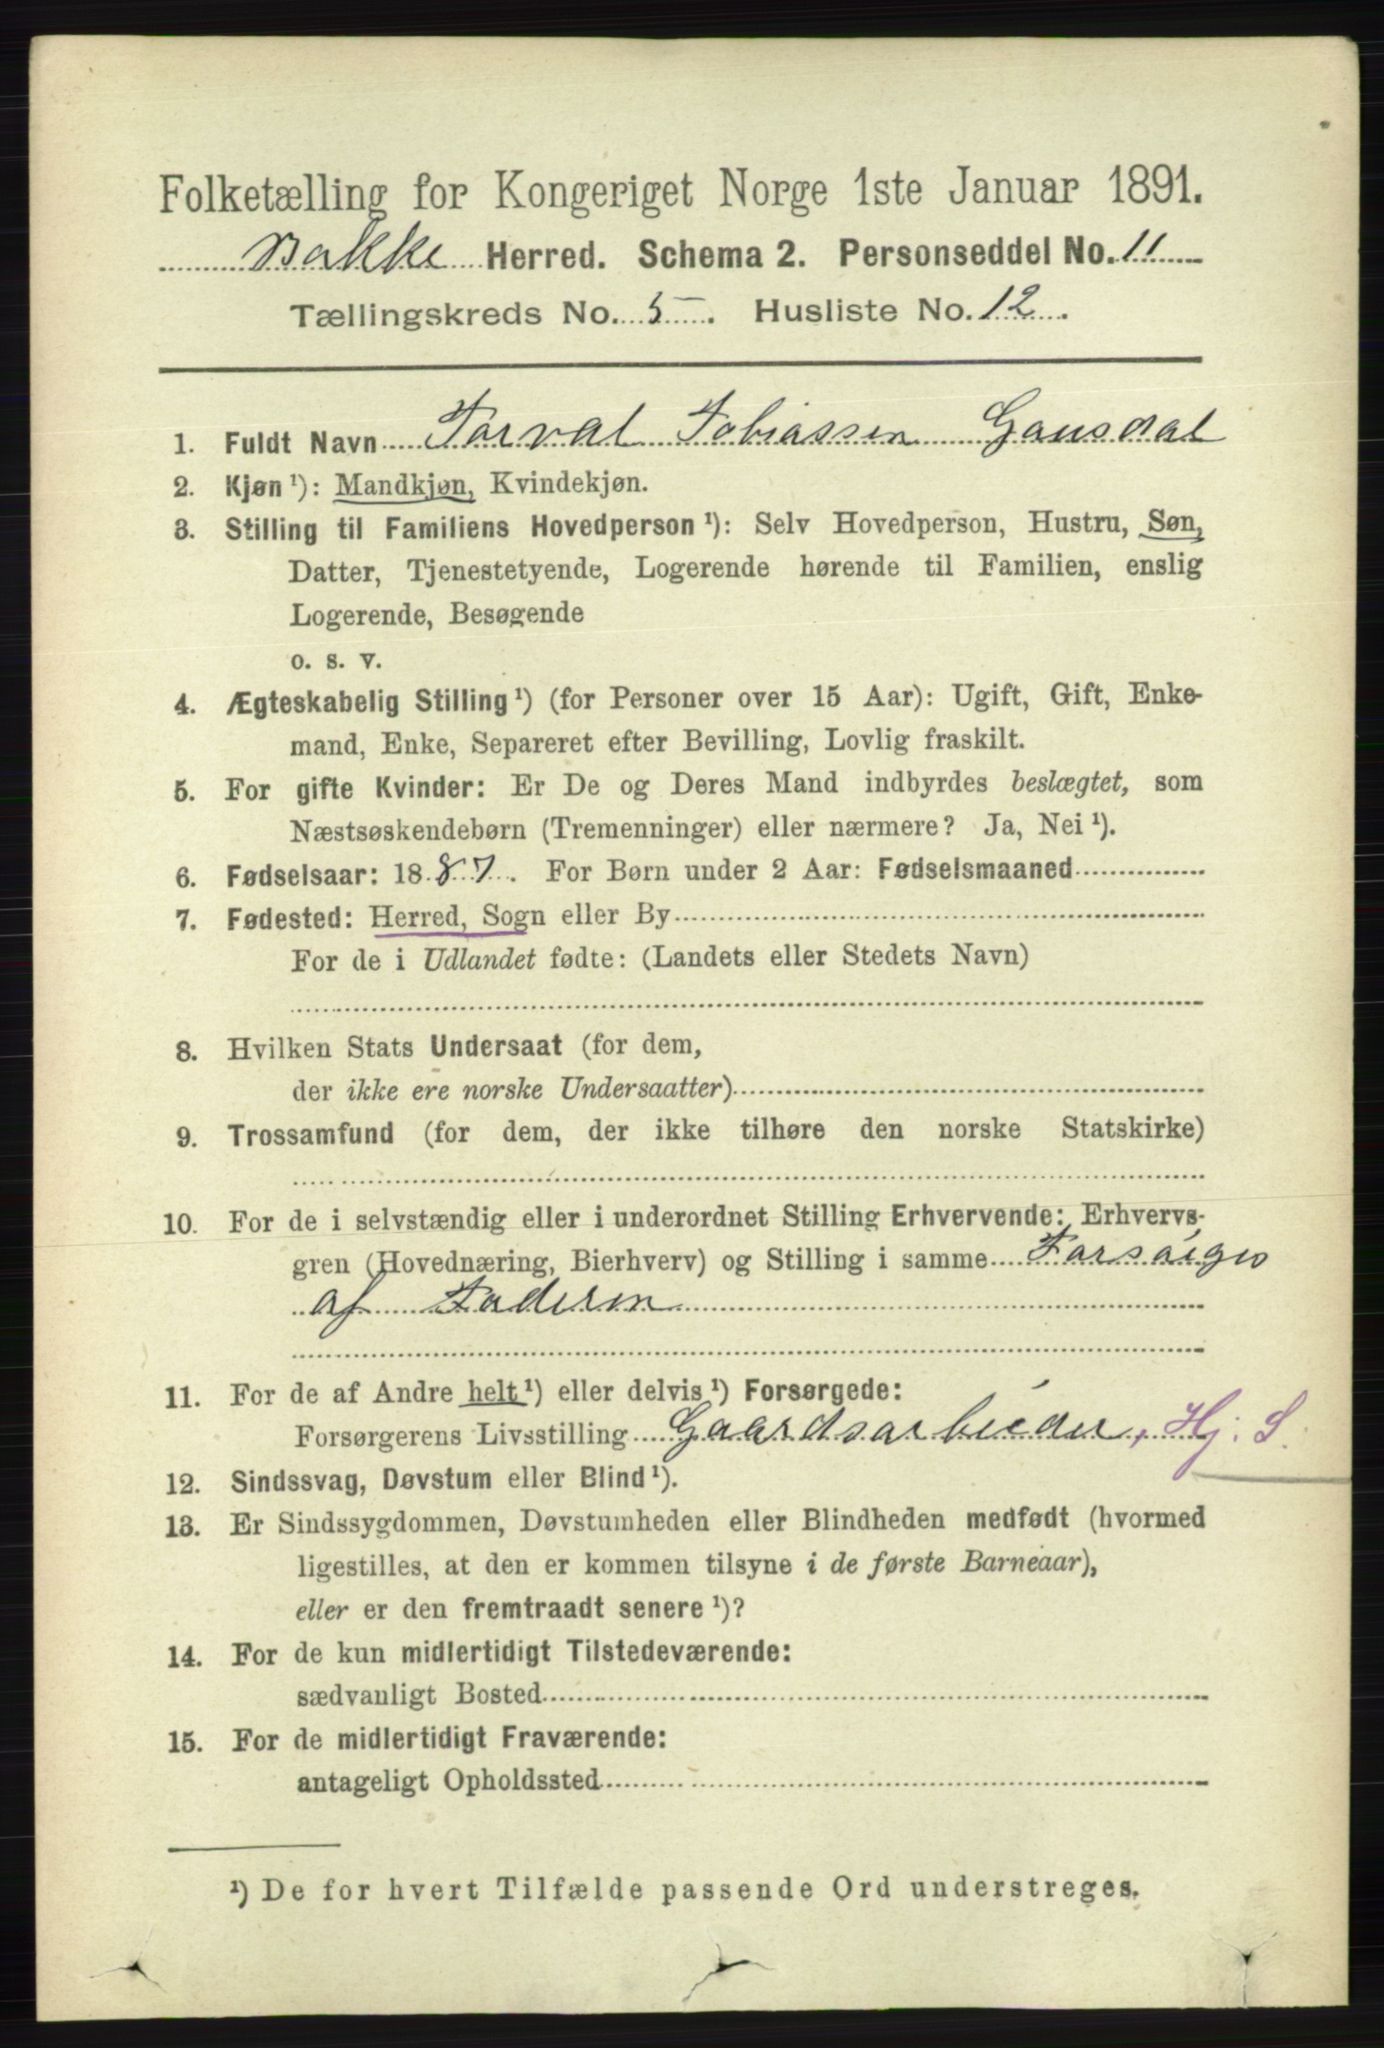 Folketælling for Kongeriget Norge 1ste Januar 1891.
Bakke Herred. Schema 2. Personseddel No. 11
Tællingskreds No. 5. Husliste No. 12.
1. Fuldt Navn Torval Tobiassen Gausdal
2. Kjøn ¹): Mandkjøn, Kvindekjøn.
3. Stilling til Familiens Hovedperson ¹): Selv Hovedperson, Hustru, Søn,
Datter, Tjenestetyende, Logerende hørende til Familien, enslig
Logerende, Besøgende
o. s. v.
4. Ægteskabelig Stilling ¹) (for Personer over 15 Aar): Ugift, Gift, Enke-
mand, Enke, Separeret efter Bevilling, Lovlig fraskilt.
5. For gifte Kvinder: Er De og Deres Mand indbyrdes beslægtet, som
Næstsøskendebørn (Tremenninger) eller nærmere? Ja, Nei ¹).
6. Fødselsaar: 1887. For Børn under 2 Aar: Fødselsmaaned
7. Fødested: Herred, Sogn eller By
For de i Udlandet fødte: (Landets eller Stedets Navn)
8. Hvilken Stats Undersaat (for dem,
der ikke ere norske Undersaatter)
9. Trossamfund (for dem, der ikke tilhøre den norske Statskirke)
10. For de i selvstændig eller i underordnet Stilling Erhvervende: Erhvervs-
gren (Hovednæring, Bierhverv) og Stilling i samme Forsørges
af Faderen
11. For de af Andre helt ¹) eller delvis ¹) Forsørgede:
Forsørgerens Livsstilling Gaardsarbeider, Hj. S.
12. Sindssvag, Døvstum eller Blind ¹).
13. Er Sindssygdommen, Døvstumheden eller Blindheden medfødt (hvormed
ligestilles, at den er kommen tilsyne i de første Barneaar),
eller er den fremtraadt senere ¹)?
14. For de kun midlertidigt Tilstedeværende:
sædvanligt Bosted
15. For de midlertidigt Fraværende:
antageligt Opholdssted
¹) De for hvert Tilfælde passende Ord understreges.